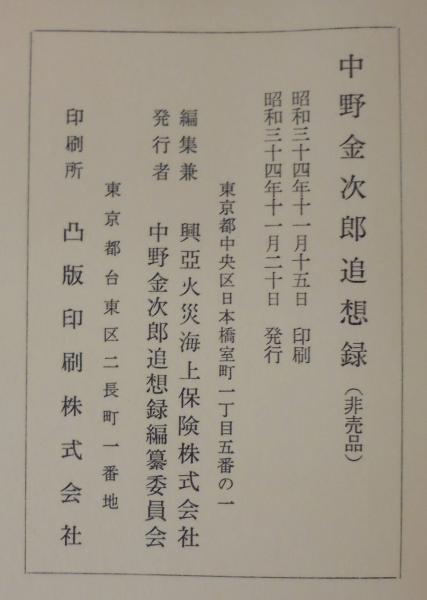 中野金次郎追想録（非売品）
昭和三十四年十一月十五日　印刷
昭和三十四年十一月二十日　発行
東京都中央区日本橋室町一丁目五番の一
編集兼　興亞火災海上保険株式会社
発行者　中野金次郎追想録編纂委員会
東京都台東区二長町一番地
印刷所　凸版印刷株式会社